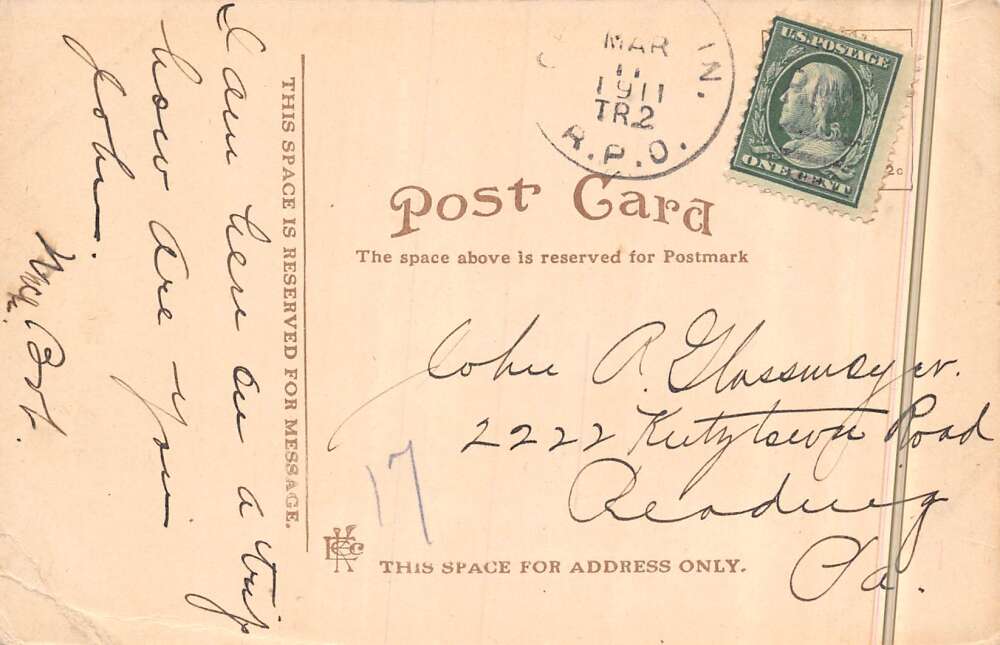 I am here on a trip
how are you
John.
THIS SPACE IS RESERVED FOR MESSAGE.
IN.
MAR
11
1911
TR2
R.P.O.
U.S. POSTAGE
ONE CENT
Post Card
The space above is reserved for Postmark
John R. Glassmoyer.
2222 Kutztown Road
Reading
Pa.
17
THIS SPACE FOR ADDRESS ONLY.